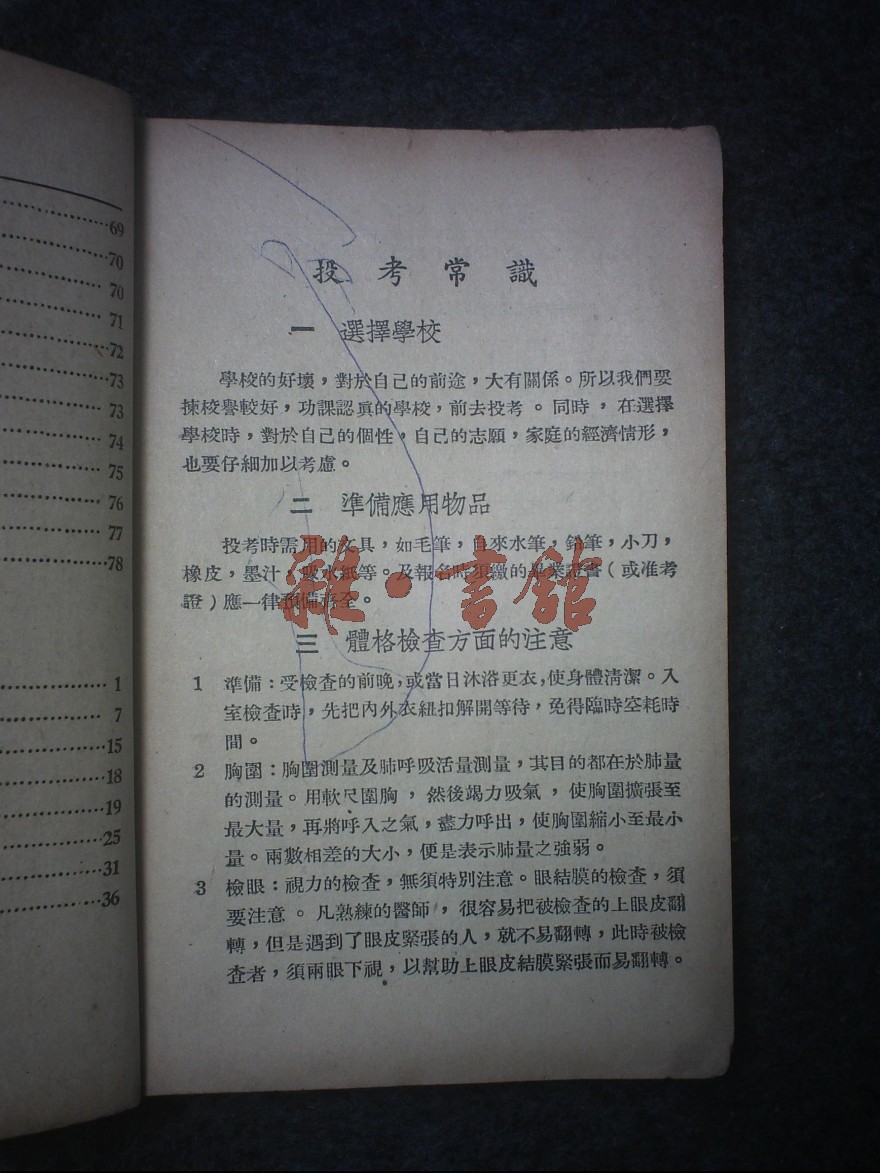 69
70
70
71
72
73
73
74
75
76
77
78
1
7
15
18
19
25
31
36
投考常識
一 選擇學校
學校的好壞，對於自己的前途，大有關係。所以我們要
揀校譽較好，功課認眞的學校，前去投考。同時，在選擇
學校時，對於自己的個性，自己的志願，家庭的經濟情形，
也要仔細加以考慮。
二 準備應用物品
投考時需用的文具，如毛筆，自來水筆，鉛筆，小刀，
橡皮，墨汁，吸水紙等。及報名時須繳的畢業證書（或准考
證）應一律預備齊全。
雜·書館
三 體格檢查方面的注意
1 準備：受檢查的前晚，或當日沐浴更衣，使身體清潔。入
室檢查時，先把內外衣紐扣解開等待，免得臨時空耗時
間。
2 胸圍：胸圍測量及肺呼吸活量測量，其目的都在於肺量
的測量。用軟尺圍胸，然後竭力吸氣，使胸圍擴張至
最大量，再將呼入之氣，盡力呼出，使胸圍縮小至最小
量。兩數相差的大小，便是表示肺量之強弱。
3 檢眼：視力的檢查，無須特別注意。眼結膜的檢查，須
要注意。凡熟練的醫師，很容易把被檢查的上眼皮翻
轉，但是遇到了眼皮緊張的人，就不易翻轉，此時被檢
查者，須兩眼下視，以幫助上眼皮結膜緊張而易翻轉。